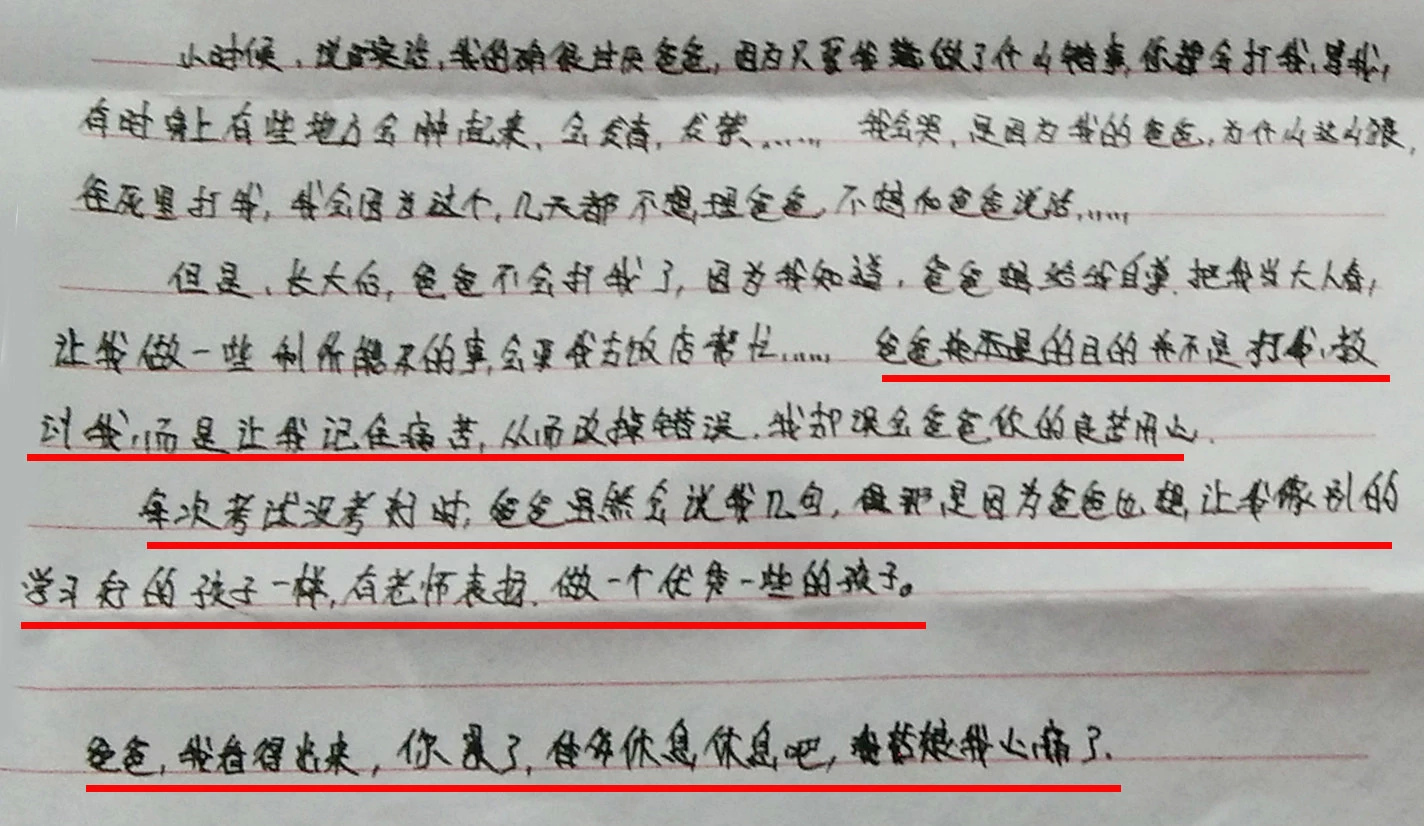 小时候，说实话，我的确很讨厌爸爸，因为只要我做了什么错事，你都会打我，骂我，
有时身上有些地方会肿起来、会发青，发紫…… 我会哭，是因为我的爸爸，为什么这么狠，
往死里打我，我会因为这个，几天都不想理爸爸，不想和爸爸说话……
但是、长大后，爸爸不会打我了，因为我知道，爸爸想给我自尊，把我当大人看，
让我做一些力所能及的事，会要我去饭店帮忙…… 爸爸的目的并不是打我、教
训我，而是让我记住痛苦，从而改掉错误，我却误会爸爸你的良苦用心。
每次考试没考好时，爸爸虽然会说我几句，但那是因为爸爸也想让我像别的
学习好的孩子一样，有老师表扬、做一个优秀一些的孩子。
爸爸，我看得出来，你累了，休息休息吧，我心痛了。